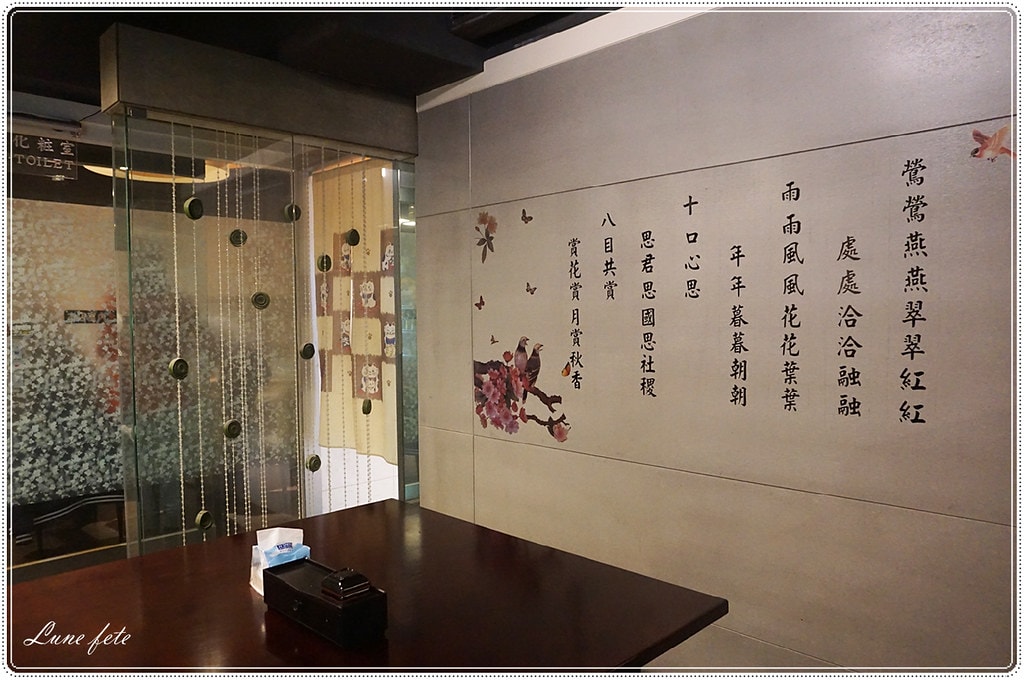 鶯鶯燕燕翠翠紅紅
處處洽洽融融
雨雨風風花花葉葉
年年暮暮朝朝
十口心思
思君思國思社稷
八目共賞
賞花賞月賞秋香
化粧室
TOILET
Lune fete